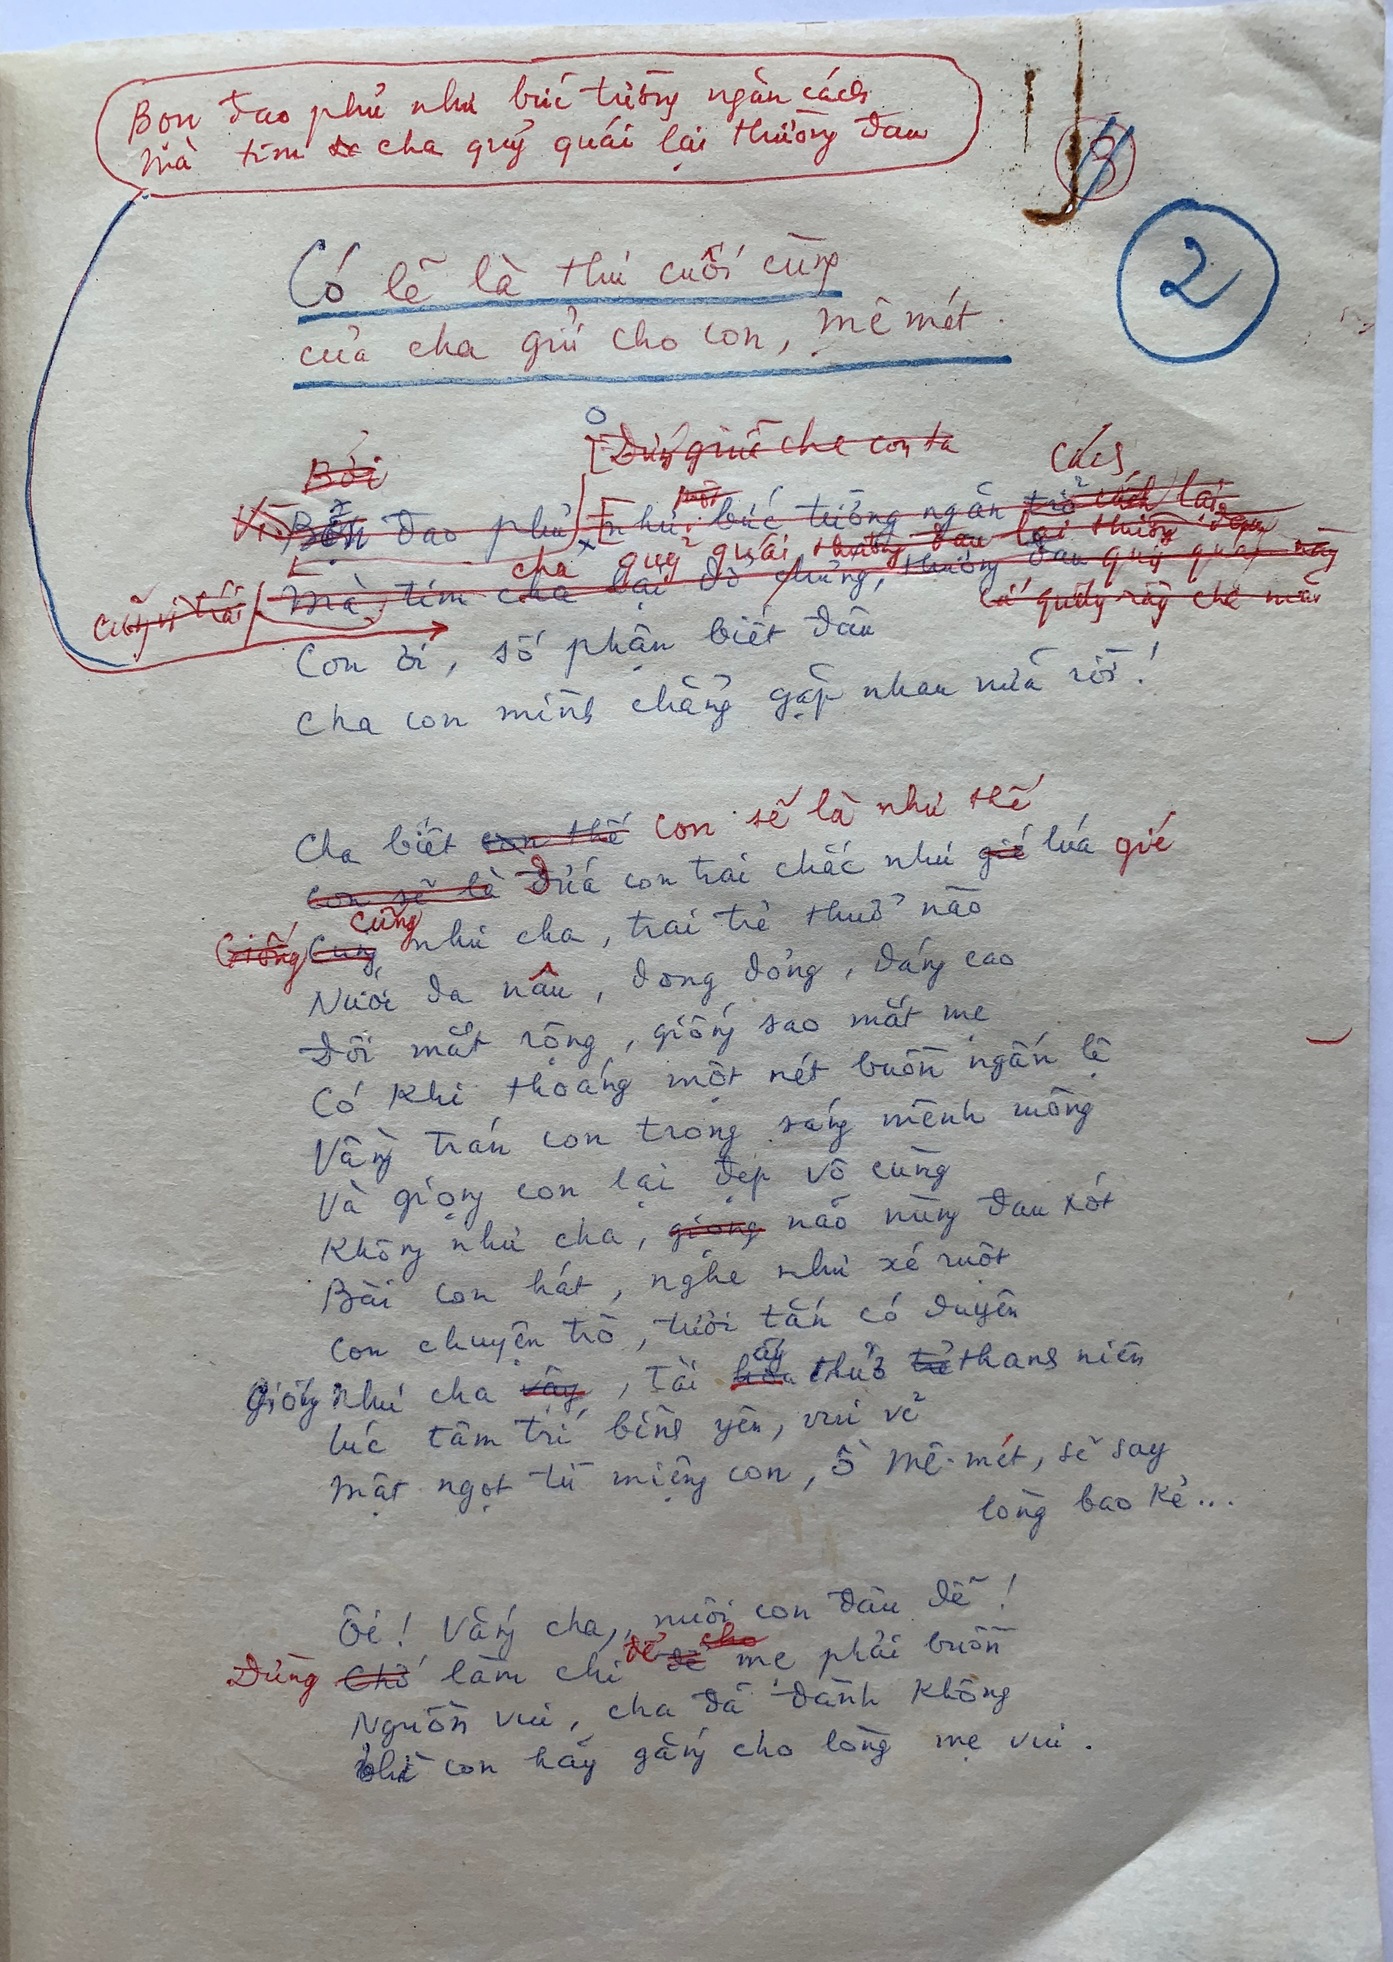 Bọn đao phủ như bức tường ngăn cách
Mà tim cha quỷ quái lại thường đau
3
2
Có lẽ là thư cuối cùng
của cha gửi cho con, mê mét.
[Đứng giữa cha con ta
Bởi
cách
Vì Bọn đao phủ [như bức tường ngăn trở cách lại
cha quỷ quái thường đau lại thường đau
Mà tim cha lại dở chứng, thường đau quỷ quái này
Cũng vì trái
Con ơi, số phận biết đâu
Cha con mình chẳng gặp nhau nữa rồi!
Cha biết con thế con sẽ là như thế
Con sẽ là Đứa con trai chắc như gié lúa gié
Giống Cũng Cũng như cha, trai trẻ thuở nào
Nước da nâu, dong dỏng, dáng cao
Đôi mắt rộng, giống sao mắt mẹ
Có khi thoáng một nét buồn ngấn lệ
Vầng trán con trong sáng mênh mông
Và giọng con lại đẹp vô cùng
Không như cha, giọng não nùng đau xót
Bài con hát, nghe như xé ruột
Con chuyện trò, tươi tắn có duyên
ấy
Giống như cha vậy, Tài hoa thuở thanh niên
Lúc tâm trí bình yên, vui vẻ
Mật ngọt từ miệng con, ồ Mê-mét, sẽ say
lòng bao kẻ...
Ôi! Vắng cha, nuôi con đâu dễ!
để cho
Đừng Chớ làm chi để mẹ phải buồn
Nguồn vui, cha đã đành không
Thì con hãy gắng cho lòng mẹ vui.